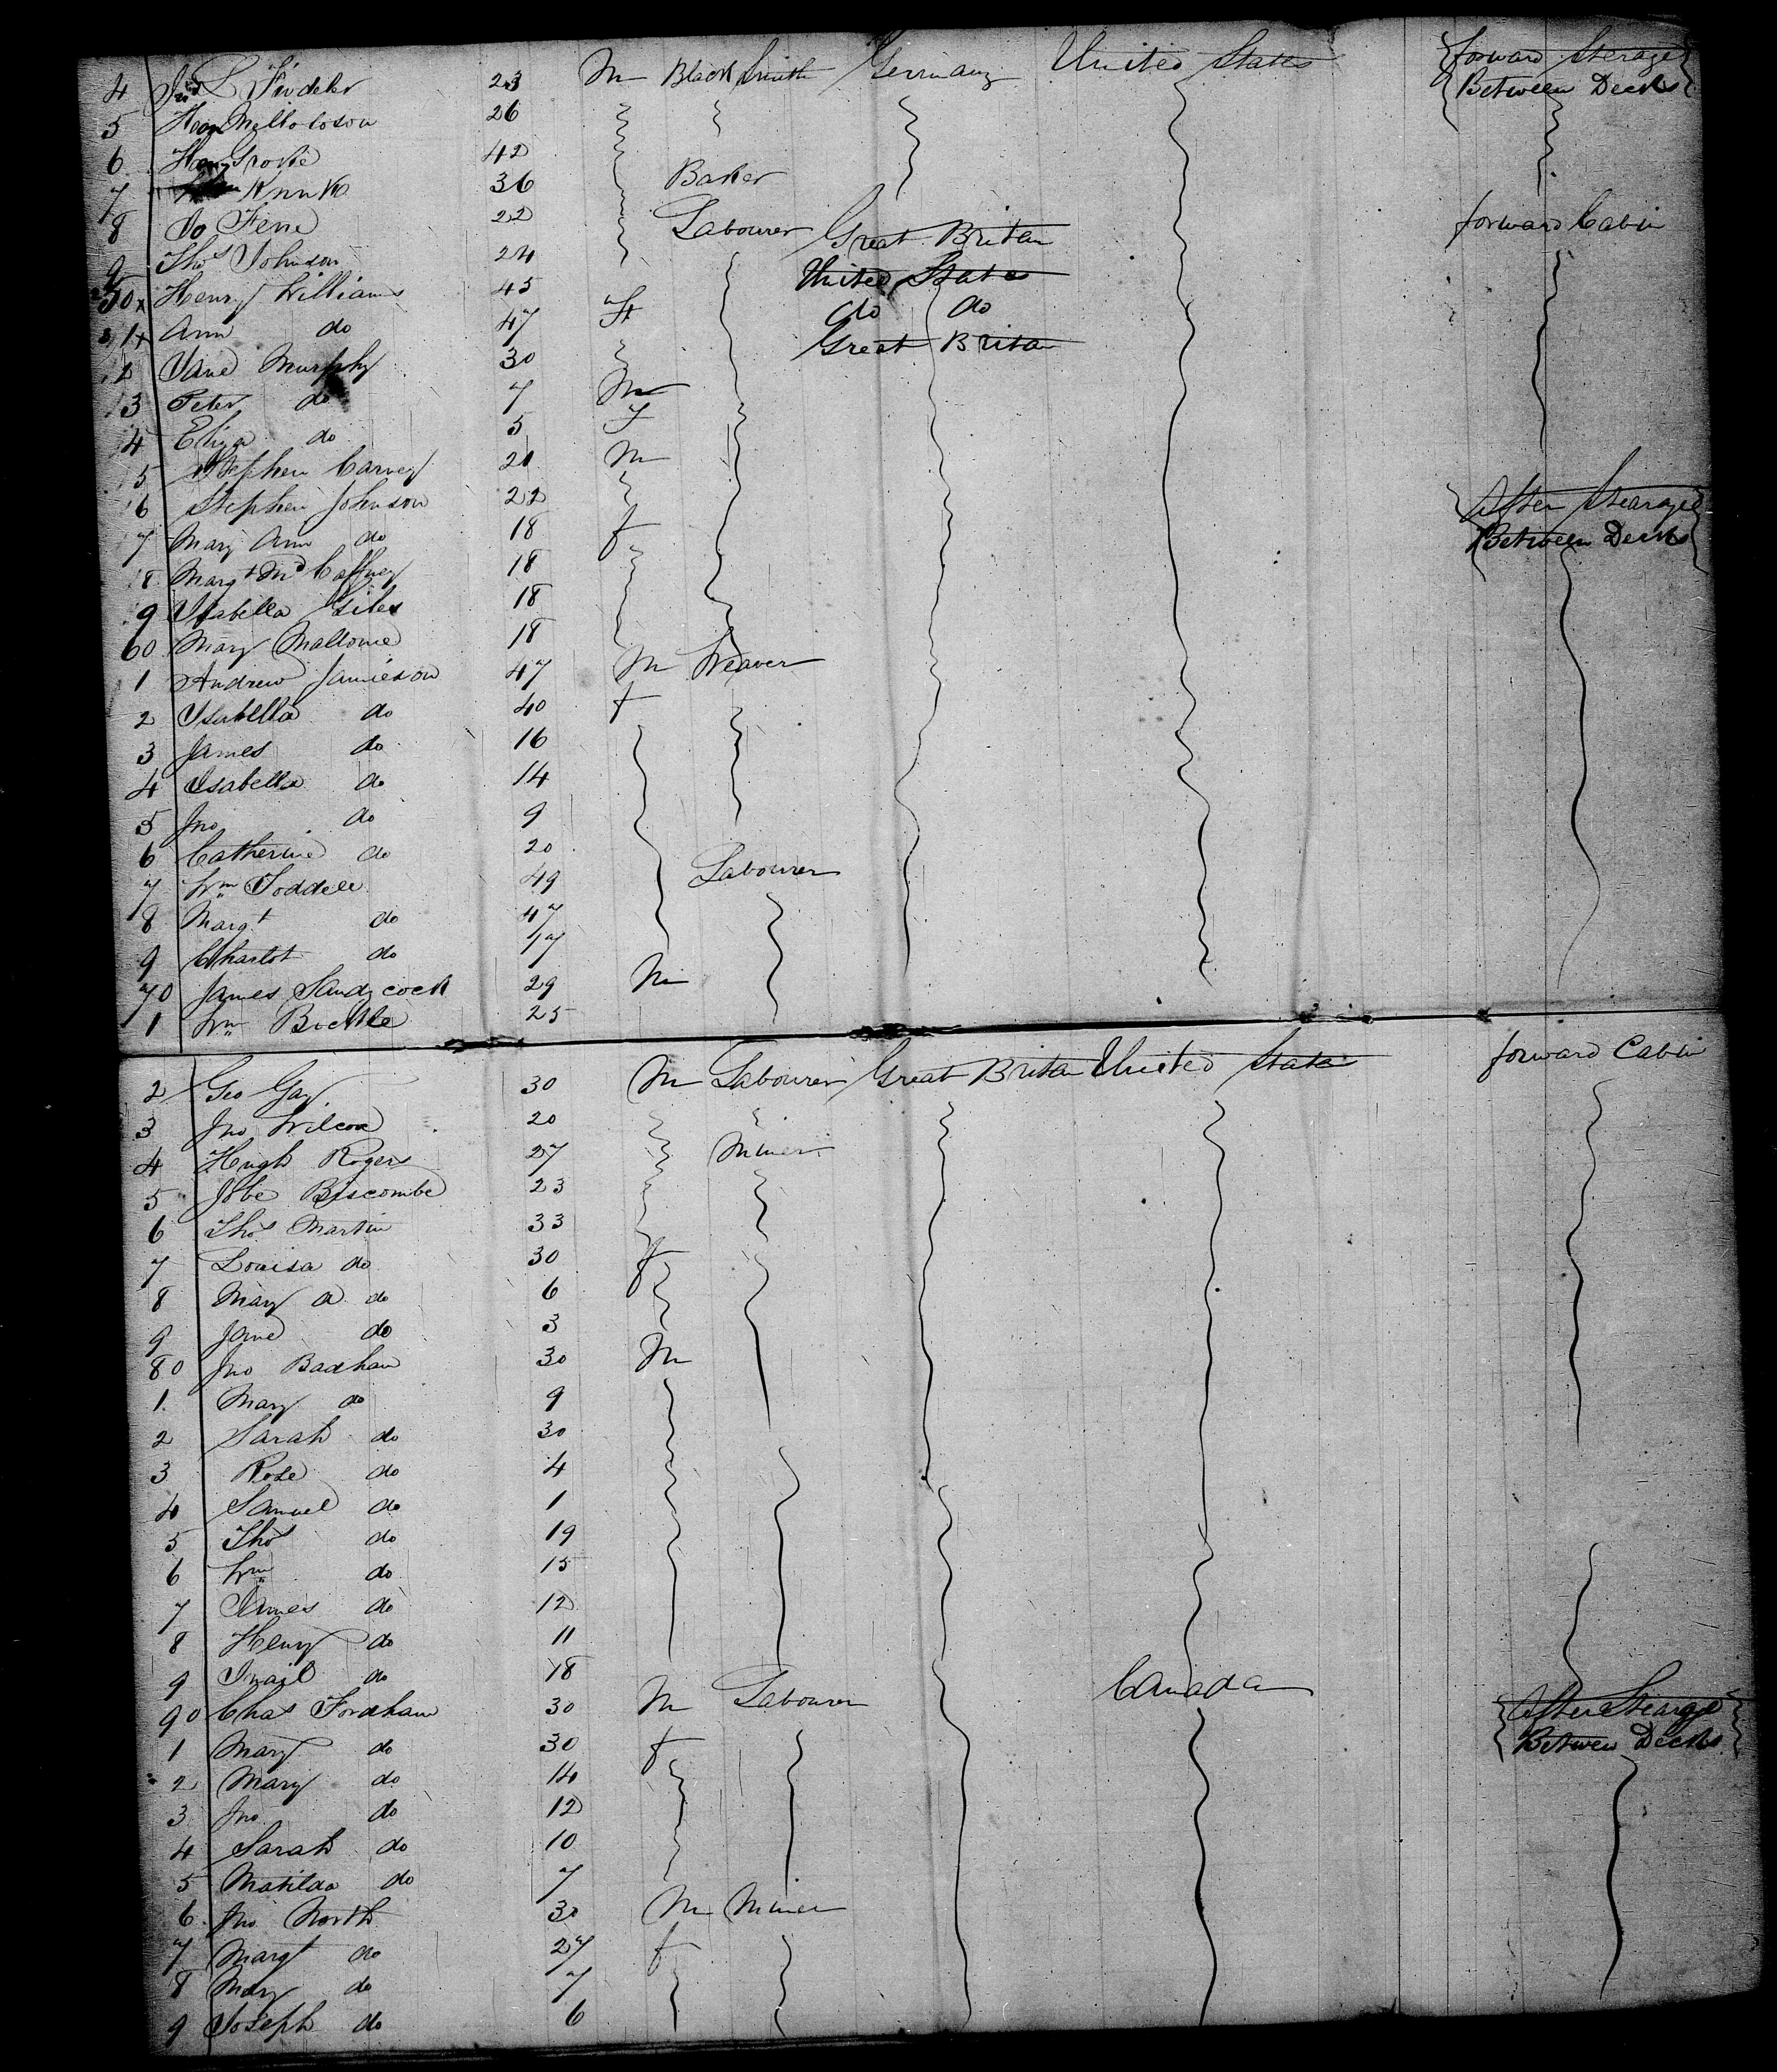 4 L Findeler 23 m Black Smith Germany United States forward Sterage
5 26 Between Decks
6 42
7 36 Baker
8 Jo Fene 22 Labourer Great Britan forward Cabin
9 Thos Johnson 24
50 x Henry Williams 45 United States
1 x Ann do 47 f do do
2 Jane Murphy 30 Great Britan
3 Peter do 7 m
4 Eliza do 5 f
5 Stephen Carvey 21 m
6 Stephen Johnson 22 After Stearage
7 Mary Ann do 18 f Between Decks
8 Margt Mc Caffrey 18
9 Isabella Giles 18
60 Mary Mallone 18
1 Andrew Jamieson 47 m Weaver
2 Isabella do 40 f
3 James do 16
4 Isabella do 14
5 Jno do 9
6 Catherine do 20
7 Wm Toddell 49 Labourer
8 Margt do 47
9 Charlot do 17
70 James Sandycock 29 m
1 Wm 25
2 Geo Gay 30 m Labourer Great Britan United States forward Cabin
3 Jno Wilcox 20
4 Hugh Rogers 27 miner
5 Jobe Biscombe 23
6 Thos Martin 33
7 Louisa do 30 f
8 Mary A do 6
9 Jane do 3
80 Jno Badham 30 m
1 Mary do 9
2 Sarah do 30
3 Rose do 4
4 Samuel do 1
5 Thos do 19
6 Wm do 15
7 James do 12
8 Henry do 11
9 do 18
90 Chas Fordham 30 m Labourer Canada After Stearage
1 Mary do 30 f Betwen Decks
2 Mary do 14
3 Jno do 12
4 Sarah do 10
5 Matilda do 7
6 Jno North 30 m miner
7 Margt do 27 f
8 Mary do 7
9 Joseph do 6